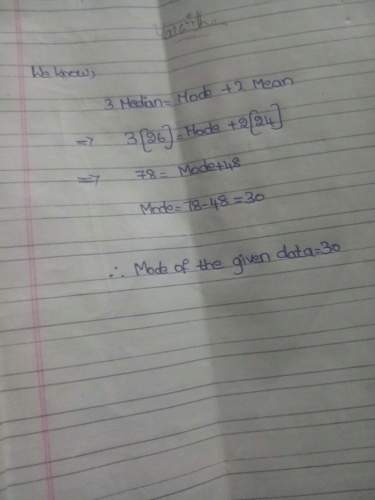 We know,
3 Median = Mode + 2 Mean
=> 3[26] = Mode + 2[24]
=> 78 = Mode+48
Mode = 78-48 = 30
∴ Mode of the given data=30